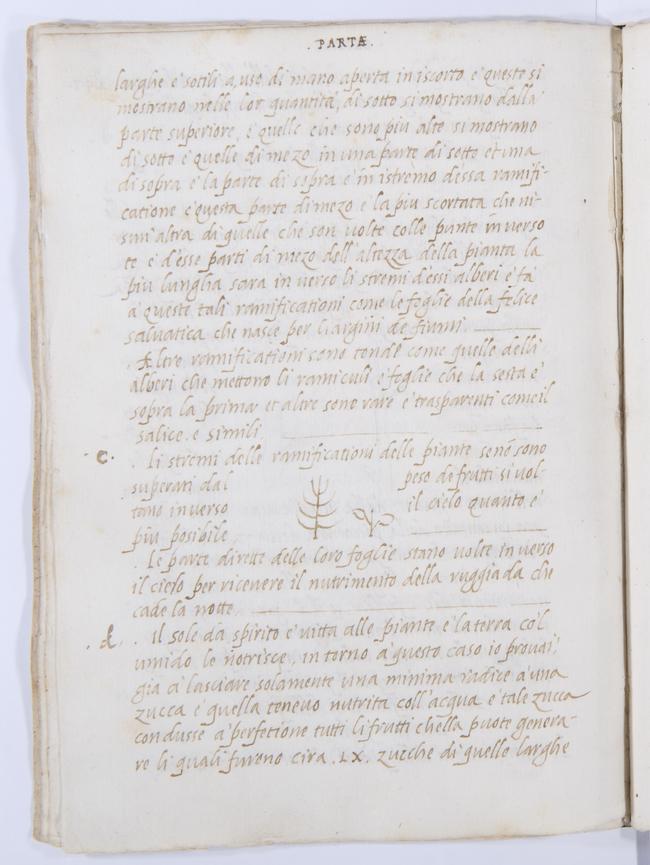 . PARTÆ.
larghe e sotili a uso di mano aperta in iscorto e queste si
mostrano nelle lor quantita, di sotto si mostrano dalla
parte superiore, e quelle che sono piu alte si mostrano
di sotto e quelle di mezo in una parte di sotto et una
di sopra e la parte di sopra e in istremo dessa ramifi-
catione e questa parte di mezo e la piu scortata che ni-
sun' altra di quelle che son volte colle punte in verso
te e d'esse parti di mezo dell' altezza della pianta la
piu lunghа sara in verso li stremi d'essi alberi e fa
a queste tali ramificationi come le foglie della felice
salvatica che nasce per li argini de fiumi.
. Altre ramificationi sono tonde come quelle delli
alberi che mettono li ramiculi e foglie che la sesta e
sopra la prima et altre sono rare e trasparenti come il
salice e simili
c. . li stremi delle ramificationi delle piante se nō sono
superati dal peso de frutti si vol-
tano in verso il cielo quanto e
piu posibile
. Le parte dirette delle loro foglie stano volte in verso
il cielo per ricevere il nutrimento della ruggiada che
cade la notte.
. d. . Il sole da spirito e vitta alle piante e la terra col
umido le notrisce, in torno a questo caso io provai
gia a' lasciare solamente una minima radice a' una
zucca e quella tenevo nutrita coll' acqua e tale zucca
condusse a' perfetione tutti li frutti ch'ella puote genera-
re li quali furono cira .LX. zucche di quelle larghe